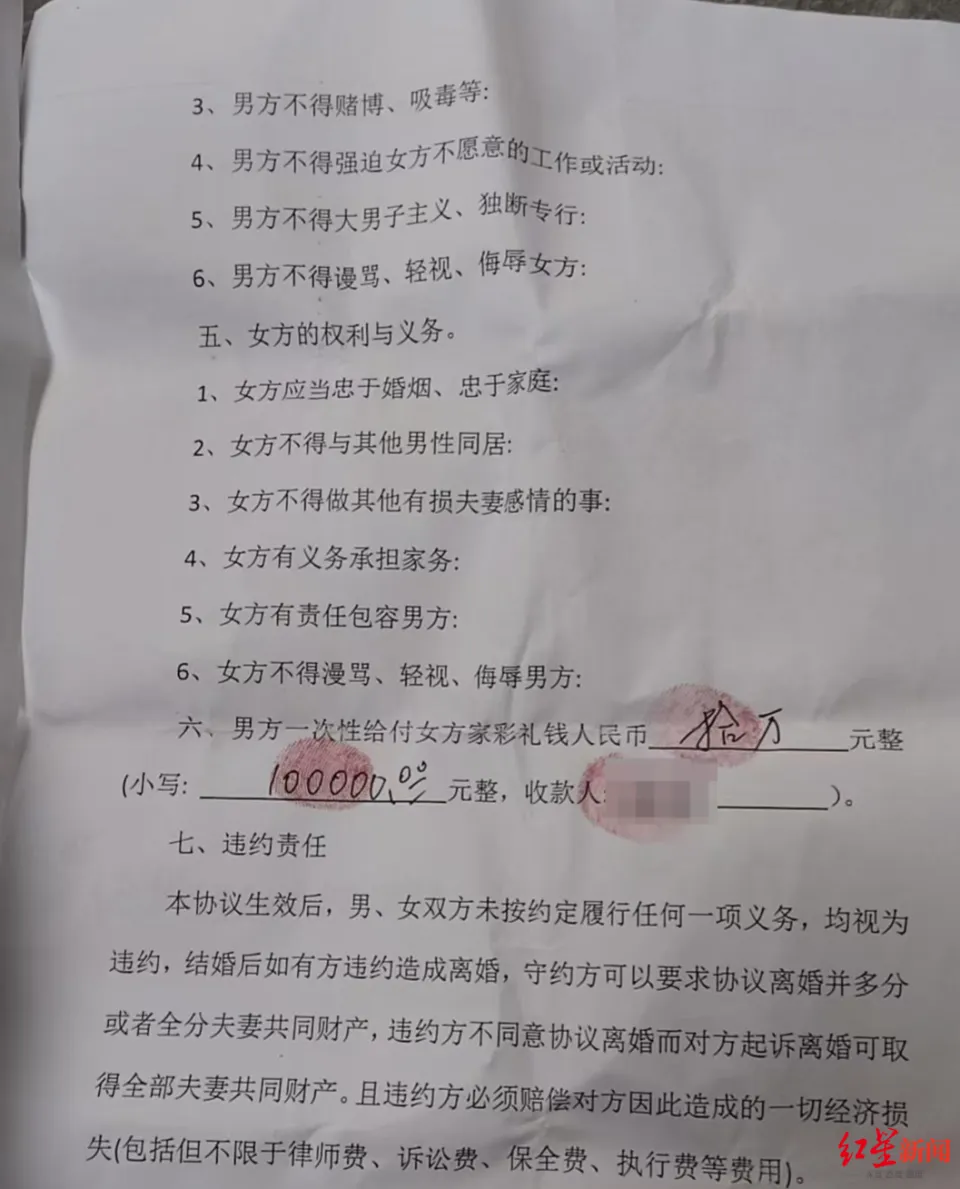 3、男方不得赌博、吸毒等:
4、男方不得强迫女方不愿意的工作或活动:
5、男方不得大男子主义、独断专行:
6、男方不得谩骂、轻视、侮辱女方:
五、女方的权利与义务。
1、女方应当忠于婚烟、忠于家庭:
2、女方不得与其他男性同居:
3、女方不得做其他有损夫妻感情的事:
4、女方有义务承担家务:
5、女方有责任包容男方:
6、女方不得漫骂、轻视、侮辱男方:
六、男方一次性给付女方家彩礼钱人民币 拾万 元整
(小写: 100000.00 元整，收款人: )。
七、违约责任
本协议生效后，男、女双方未按约定履行任何一项义务，均视为
违约，结婚后如有方违约造成离婚，守约方可以要求协议离婚并多分
或者全分夫妻共同财产，违约方不同意协议离婚而对方起诉离婚可取
得全部夫妻共同财产。且违约方必须赔偿对方因此造成的一切经济损
失(包括但不限于律师费、诉讼费、保全费、执行费等费用)。
红星新闻